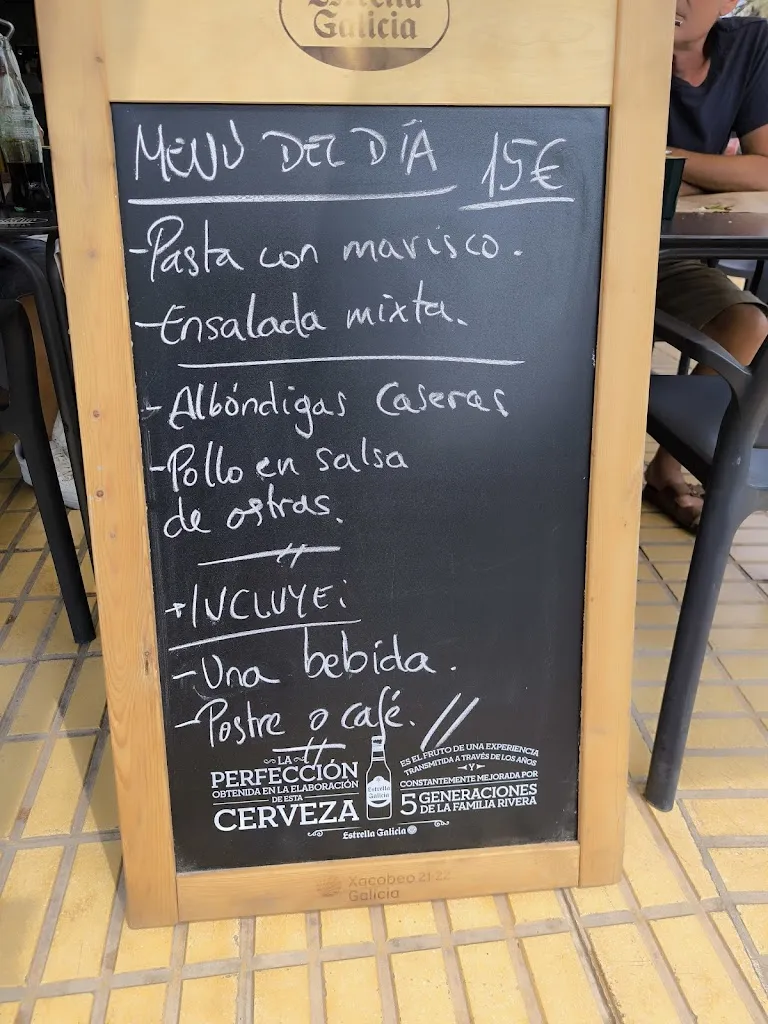 Estrella
Galicia
MENÚ DEL DÍA 15€
-Pasta con marisco.
-Ensalada mixta.
-Albóndigas Caseras
-Pollo en salsa
de ostras.
INCLUYE:
-Una bebida.
-Postre o café.
LA
PERFECCIÓN
OBTENIDA EN LA ELABORACIÓN
DE ESTA
CERVEZA
Estrella
Galicia
ES EL FRUTO DE UNA EXPERIENCIA
TRANSMITIDA A TRAVÉS DE LOS AÑOS
Y
CONSTANTEMENTE MEJORADA POR
5 GENERACIONES
DE LA FAMILIA RIVERA
Estrella Galicia
Xacobeo 21·22
Galicia